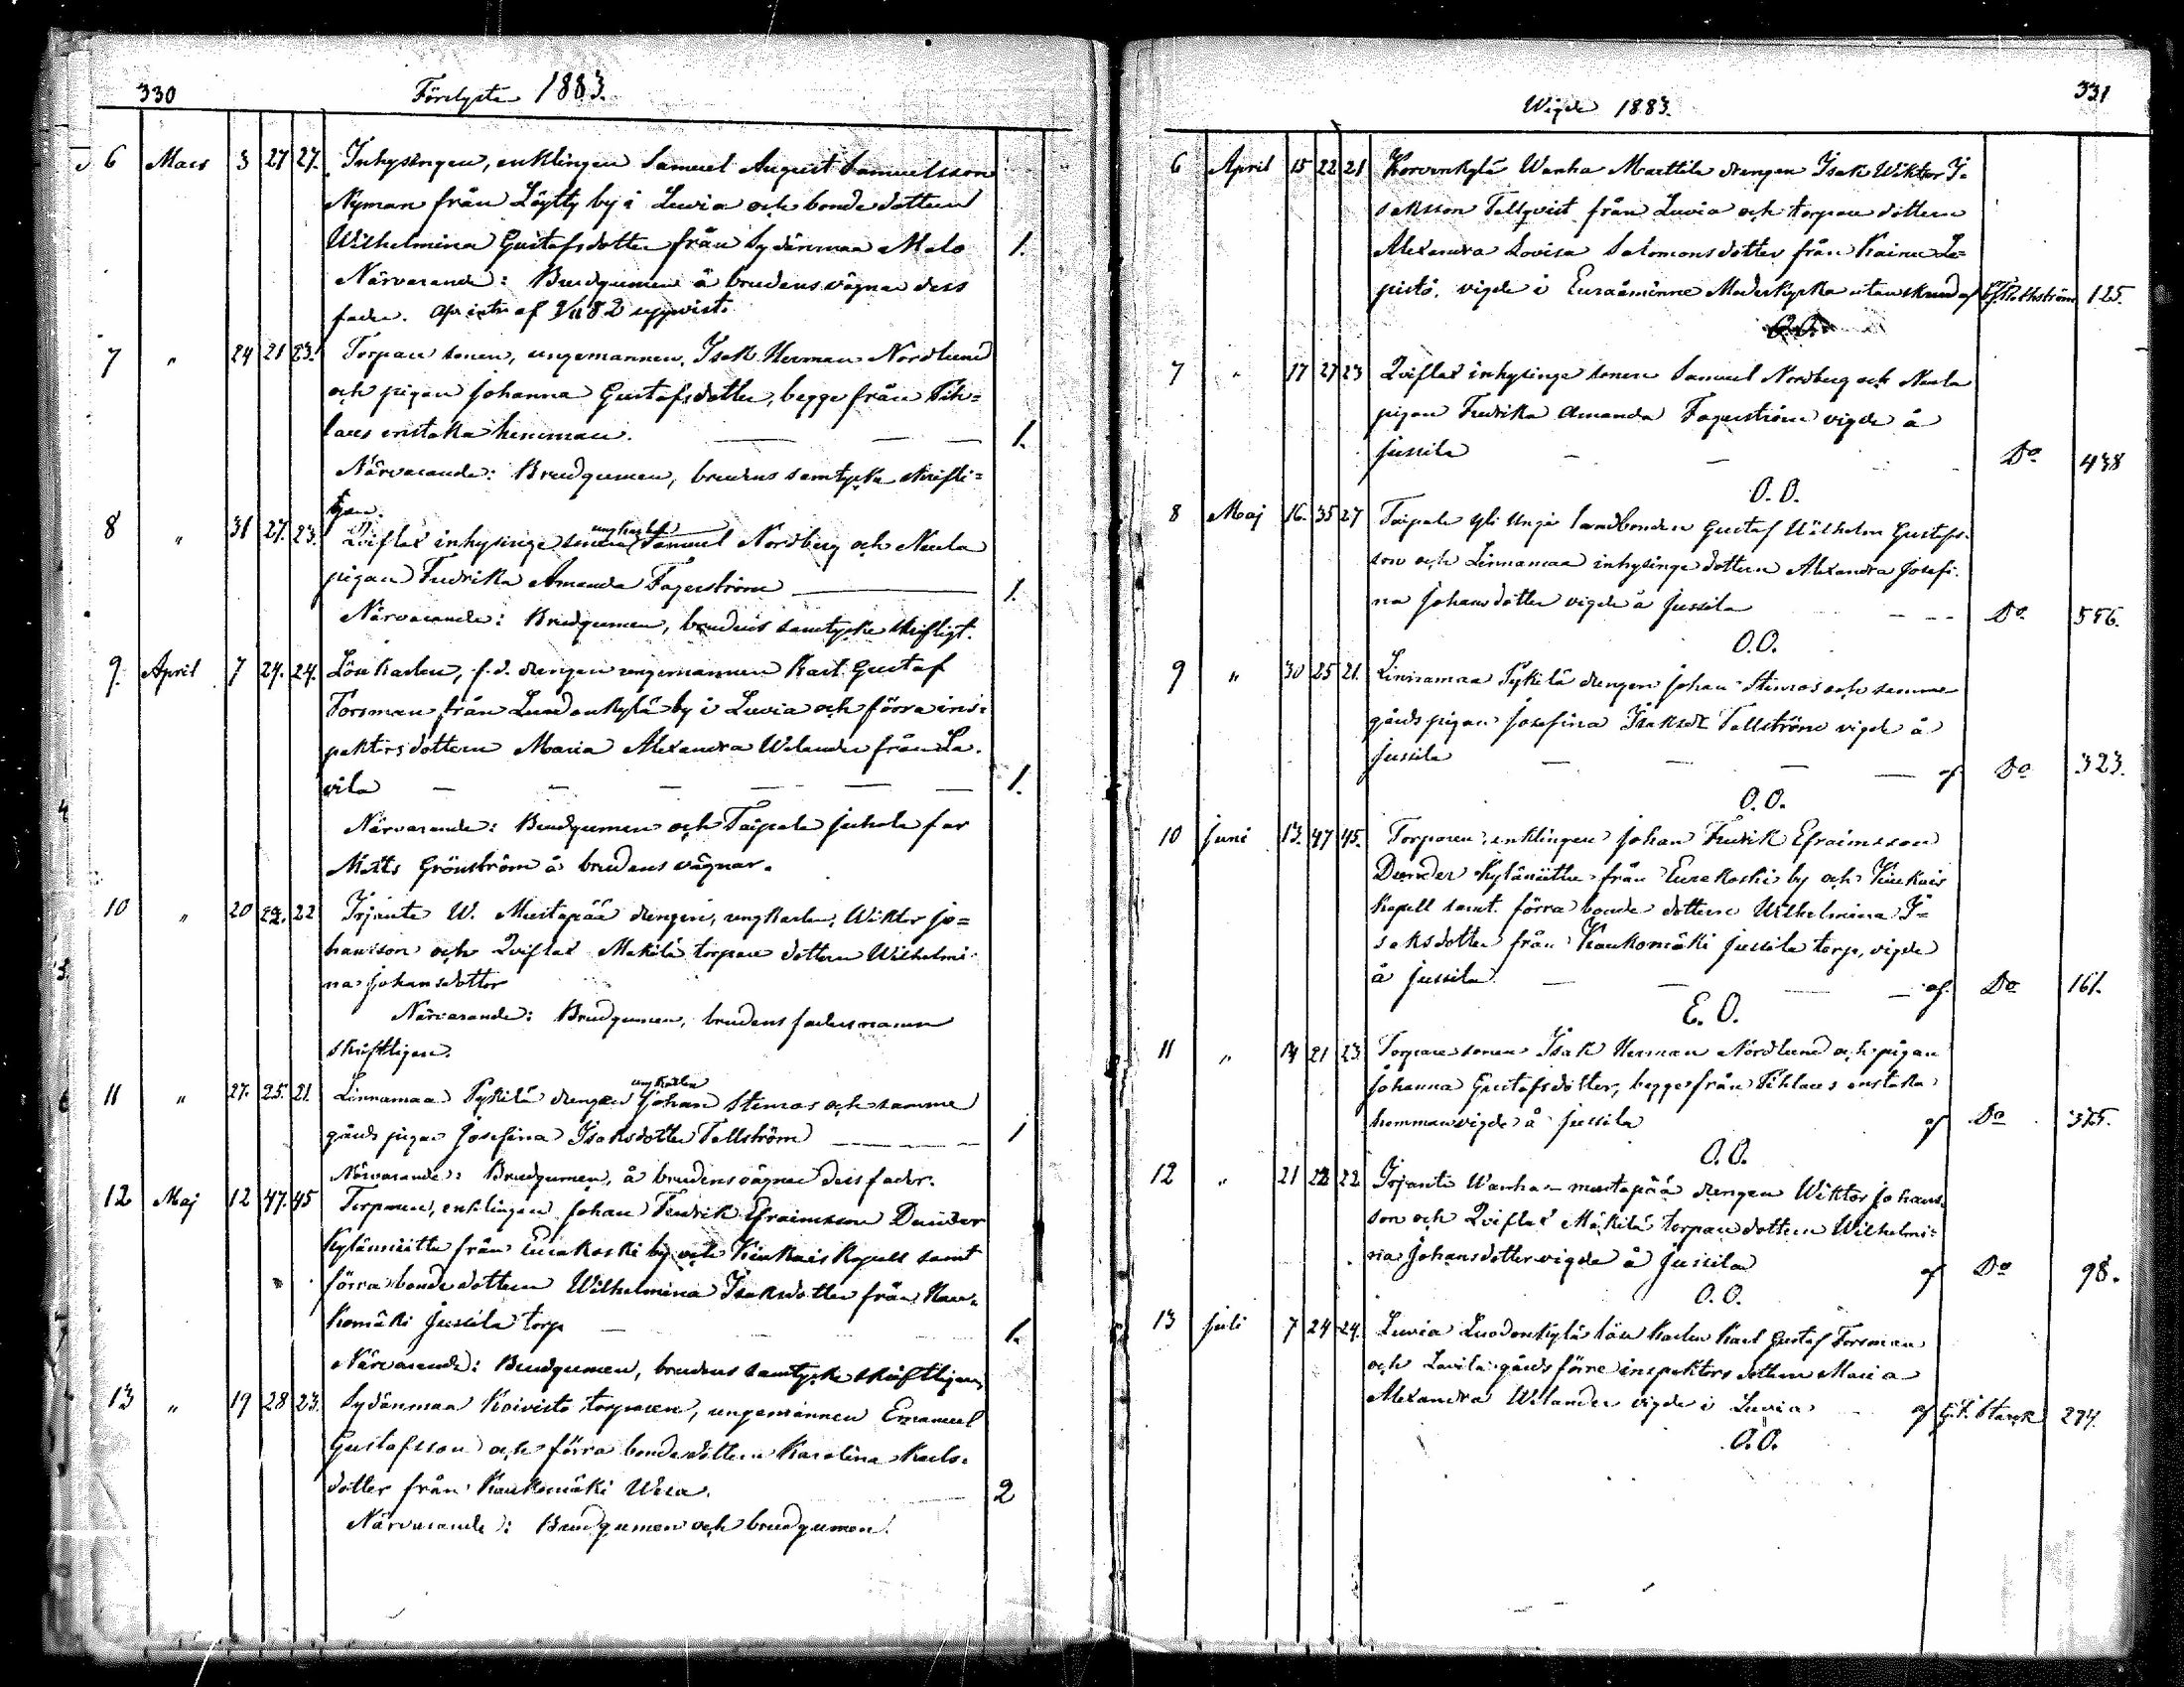 330
Förelyste 1883.
6 Mars 3 27 27. Inhysingen, enklingen Samuel August Samuelsson
Nyman från Löytty by i Luvia och bonde dottern
Wilhelmina Gustafsdotter från Sydänmaa Mälo 1.
Närvarande: Brudgumen å brudens vägnar dess
fader.
7 " 24 21 23. Torpare sonen, ungemannen, Isak Herman Nordlund
och pigan Johanna Gustafsdotter, begge från Pih=
laus enstaka hemman. 1.
Närvarande: Brudgumen, brudens samtycke skriftli=
gen.
8 " 31 27. 23. Qviflax inhysinge sonen ungkarlen Samuel Nordberg och Neula
pigan Fredrika Amanda Fagerström 1.
Närvarande: Brudgumen, brudens samtycke skriftligt.
9. April 7 24. 24. Löskarlen, f.d. drengen ungemannen Karl Gustaf
Forsman från Luodonkylä by i Luvia och förra ins=
pektors dottern Maria Alexandra Welander från La=
vila 1.
Närvarande: Brudgumen och Taipale Juhola far
Matts Grönström å brudens vägnar.
10 " 20 22. 22 Irjante W. Mustapää drengen, ungkarlen, Wiktor Jo=
hansson och Qviflax Mäkilä torpare dottern Wilhelmi=
na Johansdotter
Närvarande: Brudgumen, brudens
skriftligen.
11 " 27. 25. 21. Linnamaa Pykilä drengen ungkarlen Johan Stenros och samma
gårds pigan Josefina Isaksdotter Tallström 1
Närvarande: Brudgumen, å brudens vägnar dess fader.
12 Maj 12 47. 45 Torparen, enklingen Johan Fredrik Efraimsson Dunder
Kylänniittu från Eurakoski by och Kiukais Kapell samt
förra bonde dottern Wilhelmina Isaksdotter från Kau=
komäki Jussila torp 1.
Närvarande: Brudgumen, brudens samtycke skriftligen
13 " 19 28 23. Sydänmaa Koivisto torparen, ungemannen Emanuel
Gustafsson och förra bondedottern Karolina Karls=
dotter från Kaukomäki Uusa. 2
Närvarande: Brudgumen och brudgumen.
331
Wigde 1883.
6 April 15 22 21 Korvenkylä Wanha Marttila drengen Isak Wiktor I=
saksson Tallqvist från Luvia och torpare dottern
Alexandra Lovisa Salomonsdotter från Kainu Le=
pistö. vigde i Euraåminne Moderkyrka utan skrud af Rothström 125.
7 " 17 27 23 Qviflax inhysinge sonen Samuel Nordberg och Neula
pigan Fredrika Amanda Fagerström vigde å
Jussila Do 438
O. O.
8 Maj 16. 35 27 Taipale Yli Unga landbonden Gustaf Wilhelm Gustafs=
son och Linnamaa inhysinge dottern Alexandra Josefi=
na Johansdotter vigde å Jussila Do 556.
O.O.
9 " 30 25 21. Linnamaa Pykilä drengen Johan Stenros och samma
gårds pigan Josefina Isaksdr Tallström vigde å
Jussila af Do 323.
O. O.
10 Juni 13. 47 45. Torparen, enklingen Johan Fredrik Efraimsson
Dunder Kylänniittu från Eurakoski by och Kiukais
Kapell samt förra bonde dottern Wilhelmina I=
saksdotter från Kaukomäki Jussila torp, vigde
å Jussila af Do 161.
E. O.
11 " 14 21 23 Torpare sonen Isak Herman Nordlund och pigan
Johanna Gustafsdotter, begge från Pihlaus enstaka
hemman vigde å Jussila af Do 325.
O. O.
12 " 21 22 22 Irjanti Wanha-mustapää drengen Wiktor Johans=
son och Qviflax Mäkilä torpare dottern Wilhelmi=
na Johansdotter vigde å Jussila af Do 98.
O. O.
13 Juli 7 24 24. Luvia Luodonkylä lös karlen Karl Gustaf Forsman
och Lavila gårds förre inspektors dottern Maria
Alexandra Welander vigde i Luvia af G. F. Starck 274.
O. O.